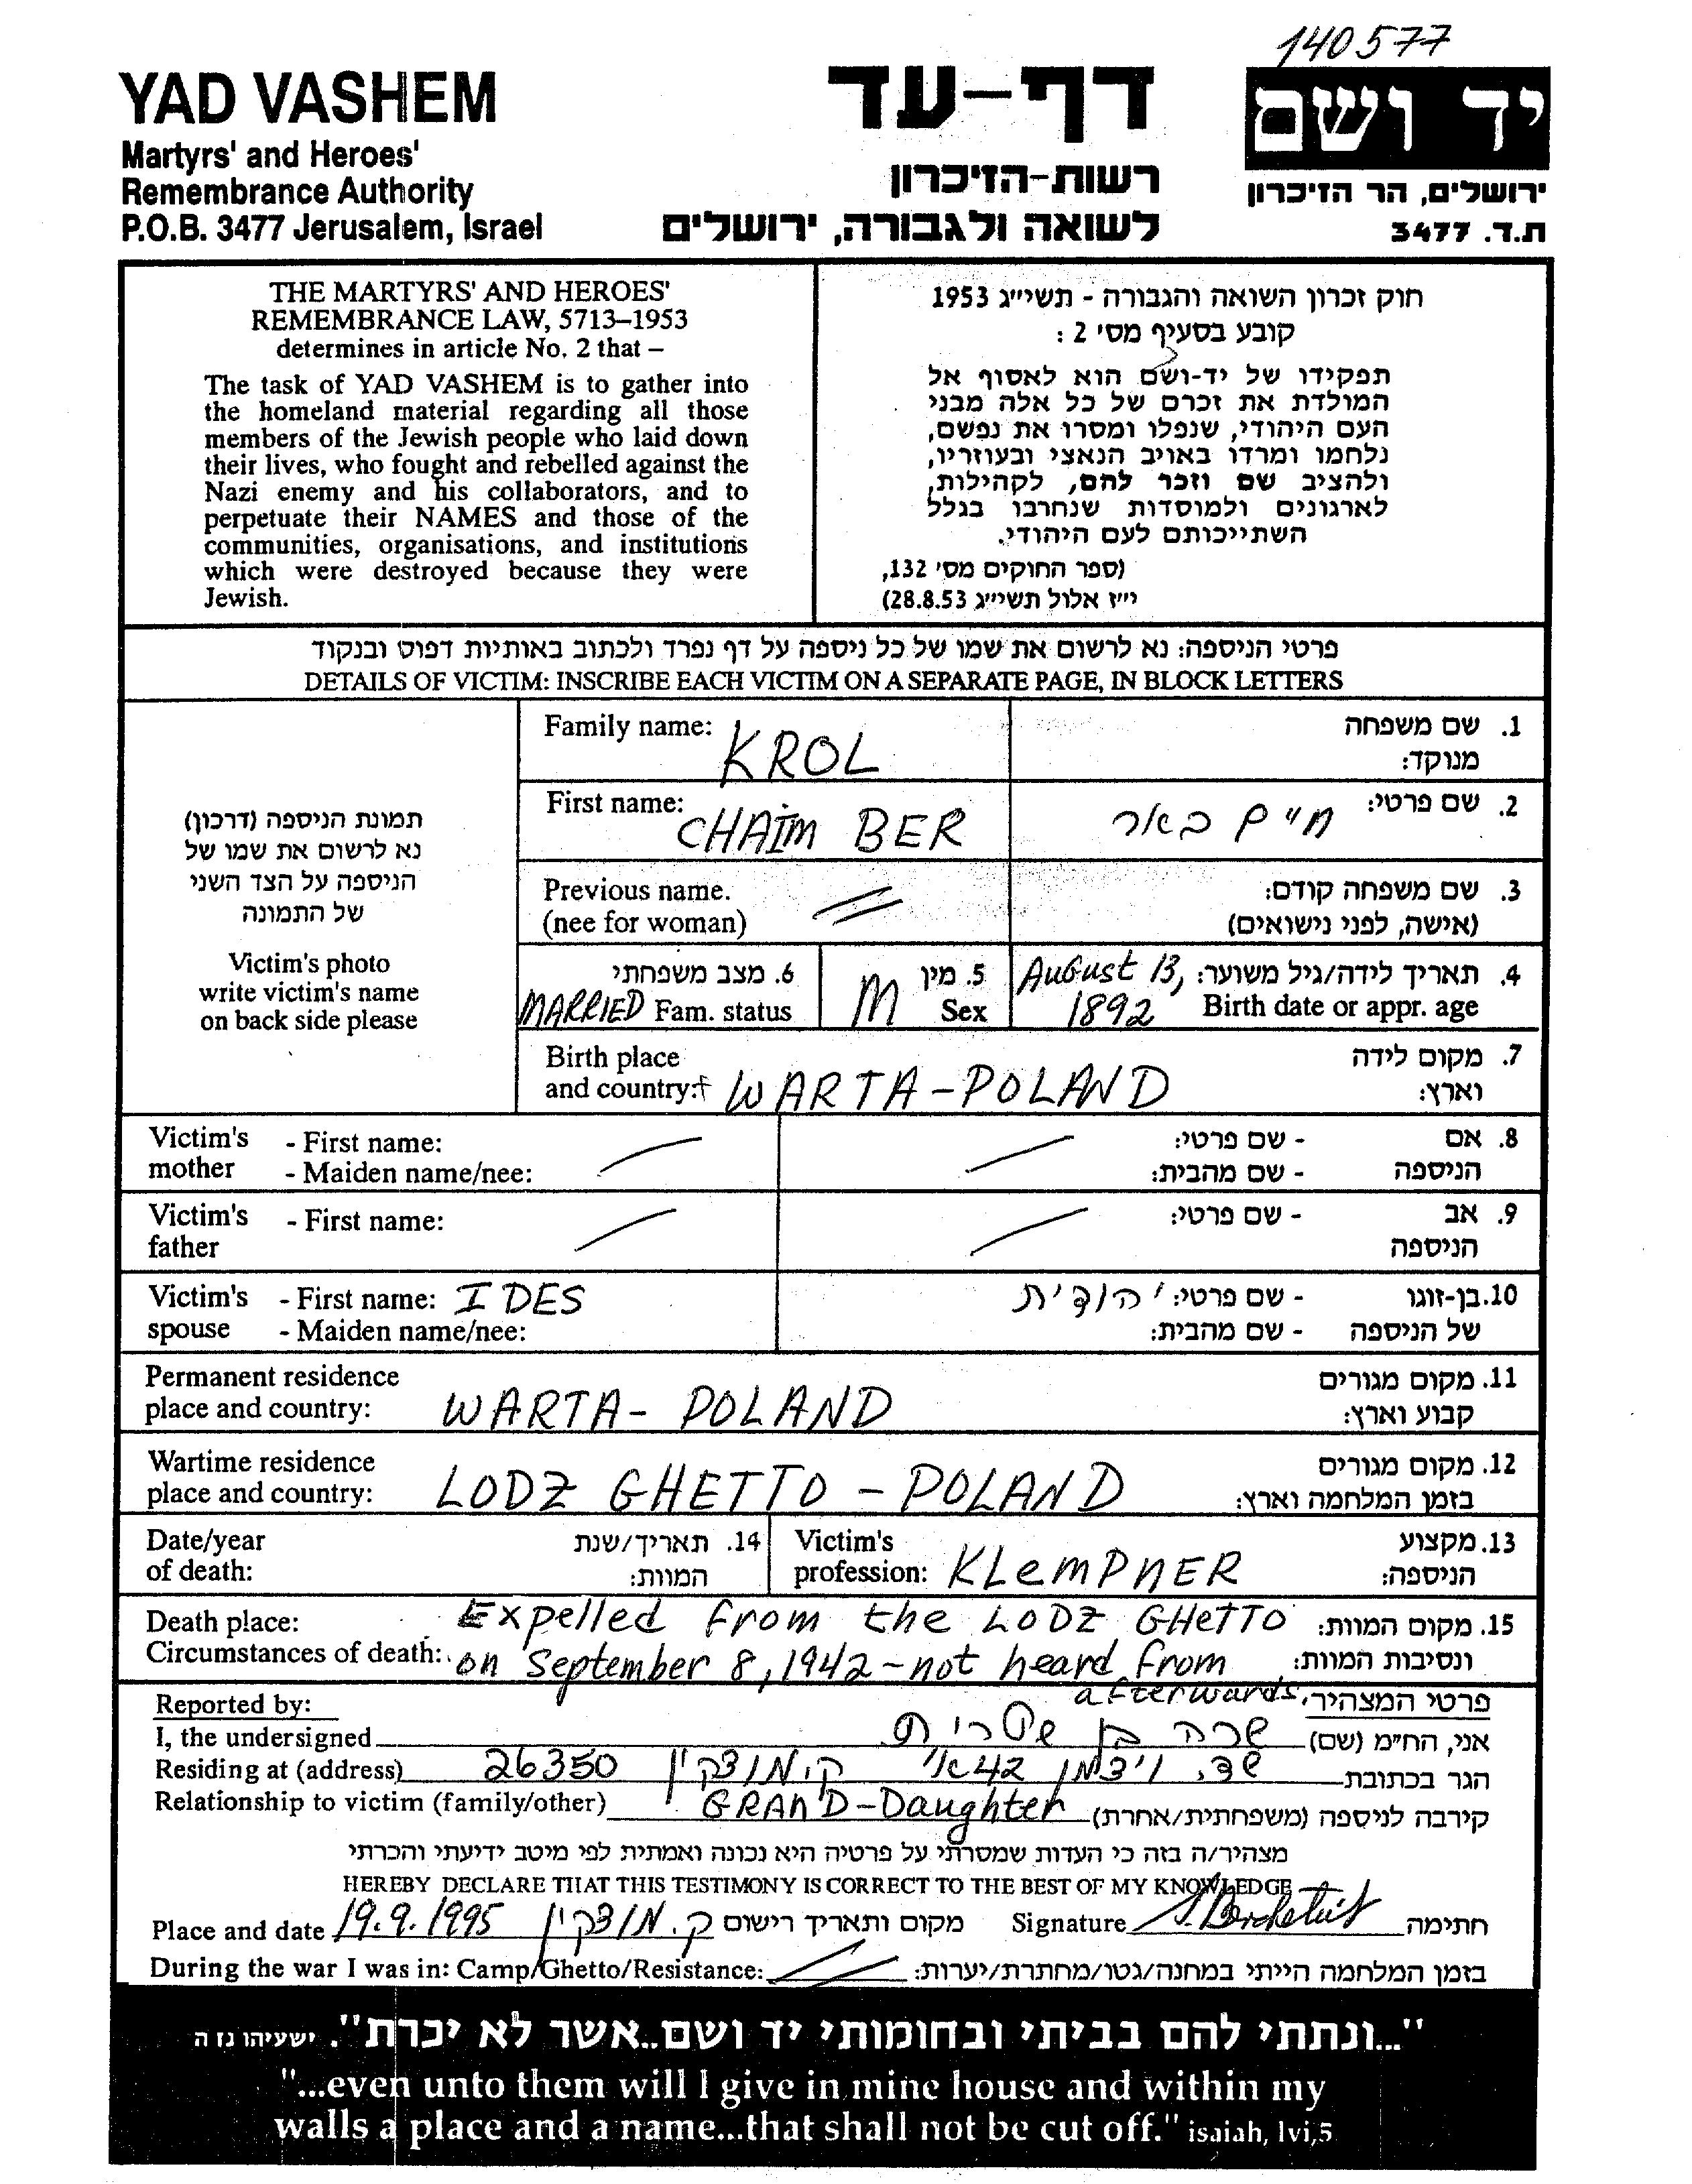 140577
YAD VASHEM
Martyrs' and Heroes'
Remembrance Authority
P.O.B. 3477 Jerusalem, Israel
דף-עד
רשות-הזיכרון
לשואה ולגבורה, ירושלים
יד ושם
ירושלים, הר הזיכרון
ת.ד. 3477
THE MARTYRS' AND HEROES'
REMEMBRANCE LAW, 5713–1953
determines in article No. 2 that –
The task of YAD VASHEM is to gather into
the homeland material regarding all those
members of the Jewish people who laid down
their lives, who fought and rebelled against the
Nazi enemy and his collaborators, and to
perpetuate their NAMES and those of the
communities, organisations, and institutions
which were destroyed because they were
Jewish.
חוק זכרון השואה והגבורה - תשי״ג 1953
קובע בסעיף מס' 2 :
תפקידו של יד-ושם הוא לאסוף אל
המולדת את זכרם של כל אלה מבני
העם היהודי, שנפלו ומסרו את נפשם,
נלחמו ומרדו באויב הנאצי ובעוזריו,
ולהציב שם וזכר להם, לקהילות,
לארגונים ולמוסדות שנחרבו בגלל
השתייכותם לעם היהודי.
(ספר החוקים מס' 132,
י״ז אלול תשי״ג 28.8.53)
פרטי הניספה: נא לרשום את שמו של כל ניספה על דף נפרד ולכתוב באותיות דפוס ובנקוד
DETAILS OF VICTIM: INSCRIBE EACH VICTIM ON A SEPARATE PAGE, IN BLOCK LETTERS
תמונת הניספה (דרכון)
נא לרשום את שמו של
הניספה על הצד השני
של התמונה
Victim's photo
write victim's name
on back side please
Family name: KROL 1. שם משפחה
מנוקד:
First name: CHAIM BER חיים באר 2. שם פרטי:
Previous name. 3. שם משפחה קודם:
(nee for woman) (אישה, לפני נישואים)
6. מצב משפחתי 5. מין August 13, 4. תאריך לידה/גיל משוער:
MARRIED Fam. status M Sex 1892 Birth date or appr. age
Birth place 7. מקום לידה
and country: WARTA-POLAND וארץ:
Victim's - First name: - שם פרטי: 8. אם
mother - Maiden name/nee: - שם מהבית: הניספה
Victim's - First name: - שם פרטי: 9. אב
father הניספה
Victim's - First name: IDES יהודית - שם פרטי: 10.בן-זוגו
spouse - Maiden name/nee: - שם מהבית: של הניספה
Permanent residence 11. מקום מגורים
place and country: WARTA- POLAND קבוע וארץ:
Wartime residence 12. מקום מגורים
place and country: LODZ GHETTO - POLAND בזמן המלחמה וארץ:
Date/year 14. תאריך/שנת Victim's 13.מקצוע
of death: המוות: profession: KLEMPNER הניספה:
Death place: Expelled from the LODZ GHETTO 15. מקום המוות:
Circumstances of death: on September 8, 1942 - not heard from ונסיבות המוות:
afterwards.
Reported by: פרטי המצהיר
I, the undersigned שרה אני, החי״מ (שם)
Residing at (address) 26350 ק. מוצקין שד. ויצמן 42 הגר בכתובת
Relationship to victim (family/other) GRAND-Daughter קירבה לניספה (משפחתית/אחרת)
מצהיר/ה בזה כי העדות שמסרתי על פרטיה היא נכונה ואמתית לפי מיטב ידיעתי והכרתי
HEREBY DECLARE THAT THIS TESTIMONY IS CORRECT TO THE BEST OF MY KNOWLEDGE
Place and date 19.9.1995 ק. מוצקין מקום ותאריך רישום Signature חתימה
During the war I was in: Camp/Ghetto/Resistance: בזמן המלחמה הייתי במחנה/גטו/מחתרת/יערות:
"...ונתתי להם בביתי ובחומותי יד ושם..אשר לא יכרת". ישעיהו נו ה
"...even unto them will I give in mine house and within my
walls a place and a name...that shall not be cut off." isaiah, lvi,5